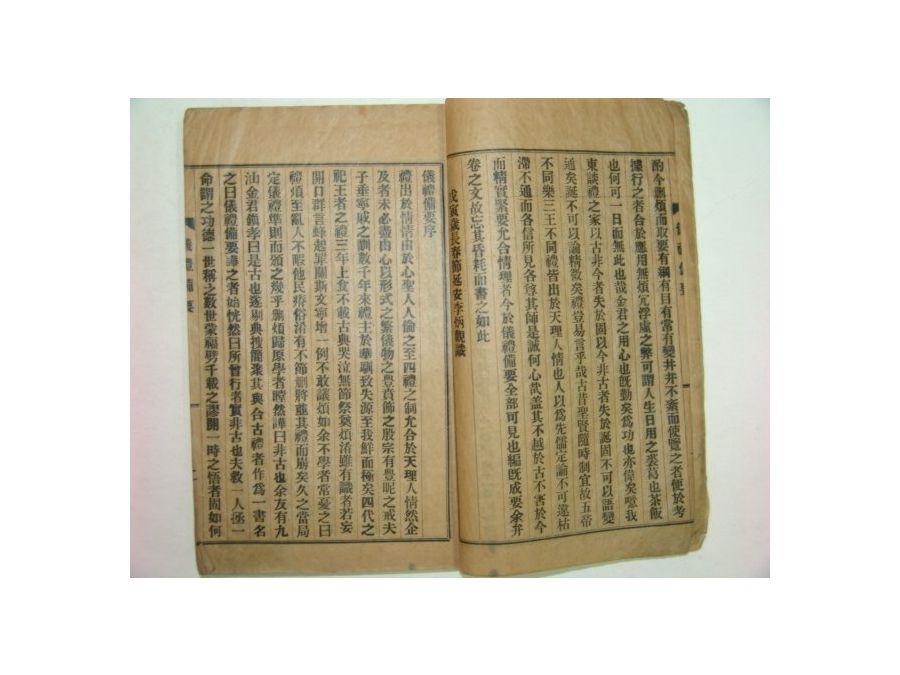 酌今刪煩而取要有綱有目有常有變井井不紊而使覽之者便於考
據行之者合於應用無煩冗浮虛之弊可謂人生日用之裘葛也茶飯
也何可一日而無此也哉金君之用心也旣勤矣爲功也亦偉矣噫我
東談禮之家以古非今者失於固以今非古者失於誕固不可以語變
通矣誕不可以論精微矣禮豈易言乎哉古昔聖賢隨時制宜故五帝
不同樂三王不同禮皆出於天理人情也人以爲先儒定論不可違枯
滯不通而各信所見各尊其師是誠何心哉盖其不越於古不害於今
而精實緊要允合情理者今於儀禮備要全部可見也編旣成要余弁
卷之文故忘其昏耗而書之如此
戊寅歲長春節延安李炳觀識
儀禮備要序
禮出於情情出於心聖人人倫之至四禮之制允合於天理人情然企
及者未必盡由心以形式之繁儀物之豊賁飾之殷宗有豊昵之戒夫
子垂寧戚之訓數千年來禮主於曄驕致失源至我鮮而極矣四代之
祀王者之禮三年上食不載古典哭泣無節祭奠煩淆雖有識者若妄
開口群言蜂起罪關斯文寧增一例不敢議煩如余不學者常憂之曰
禮煩至亂人不暇他民瘠俗淆有不節刪將重其禮而崩矣久之當局
定儀禮準則而頒之幾乎刪煩歸原學者瞠然譁曰非古也余友有九
汕金君鍾孝曰是古也遂剔典搜簡聚其與合古禮者作爲一書名
之曰儀禮備要讀之者始恍然曰所曾行者實非古也夫救一人丞一
命謂之功德一世稱之數世蒙福劈千載之謬開一時之悟者固如何
儀禮備要